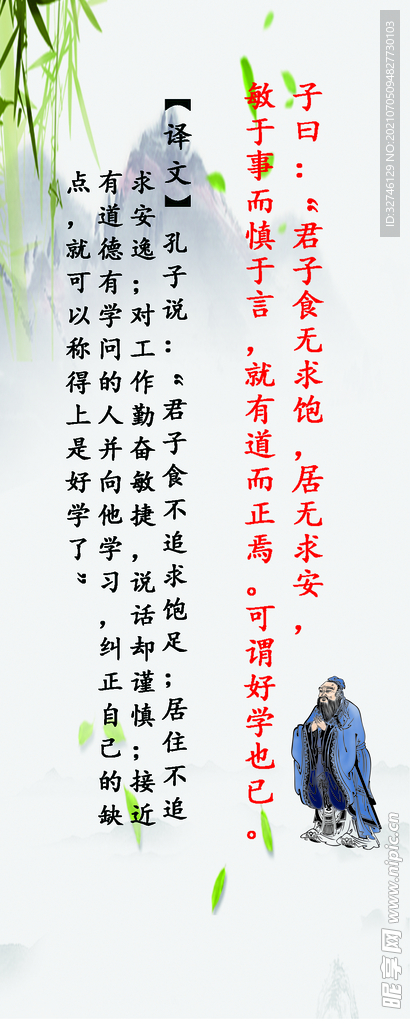 子曰：“君子食无求饱，居无求安，
敏于事而慎于言，就有道而正焉。可谓好学也已。
【译文】孔子说：“君子食不追求饱足；居住不追
求安逸；对工作勤奋敏捷，说话却谨慎；接近
有道德有学问的人并向他学习，纠正自己的缺
点，就可以称得上是好学了”
ID:32746129 NO:20210705094827730103
昵享网 www.nipic.cn